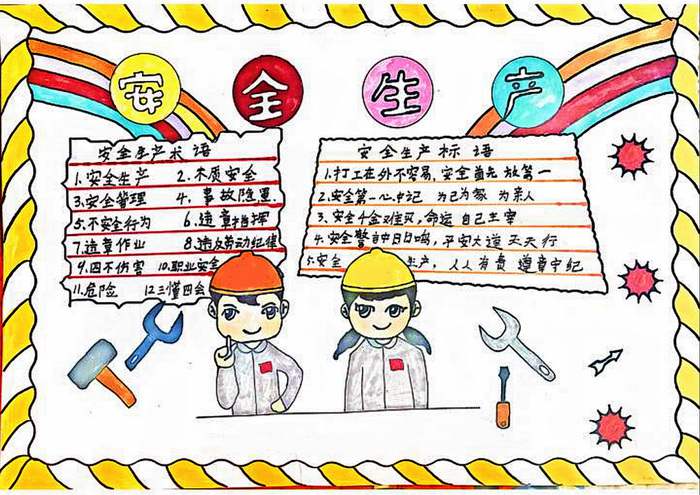 安全生产
安全生产术语
1.安全生产 2.本质安全
3.安全管理 4.事故隐患
5.不安全行为 6.违章指挥
7.违章作业 8.违反劳动纪律
9.四不伤害 10.职业安全
11.危险 12.三懂四会
安全生产标语
1.打工在外不容易,安全首先放第一
2.安全第一心中记 为己为家为亲人
3.安全千金难买,命运自己主宰
4.安全警钟日日鸣,平安大道天天行
5.安全 生产,人人有责 遵章守纪